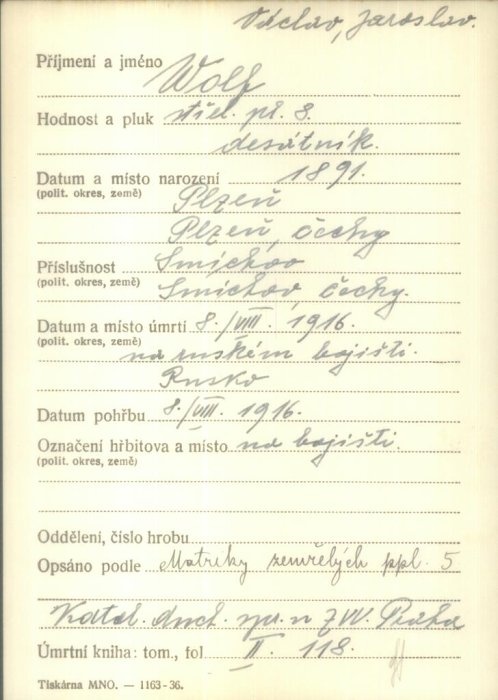 Václav, Jaroslav.
Příjmení a jméno Wolf
Hodnost a pluk střel. pl. 8.
desátník.
Datum a místo narození 1891.
(polit. okres, země) Plzeň
Plzeň, Čechy
Příslušnost Smíchov
(polit. okres, země) Smíchov, Čechy.
Datum a místo úmrtí 8./VIII. 1916.
(polit. okres, země) na ruském bojišti.
Rusko
Datum pohřbu 8./VIII. 1916.
Označení hřbitova a místo na bojišti.
(polit. okres, země)
Oddělení, číslo hrobu
Opsáno podle Matriky zemřelých ppl. 5
Katol. duch. spr. n ZVV. Praha
Úmrtní kniha: tom., fol. II. 118.
Tiskárna MNO. — 1163-36.